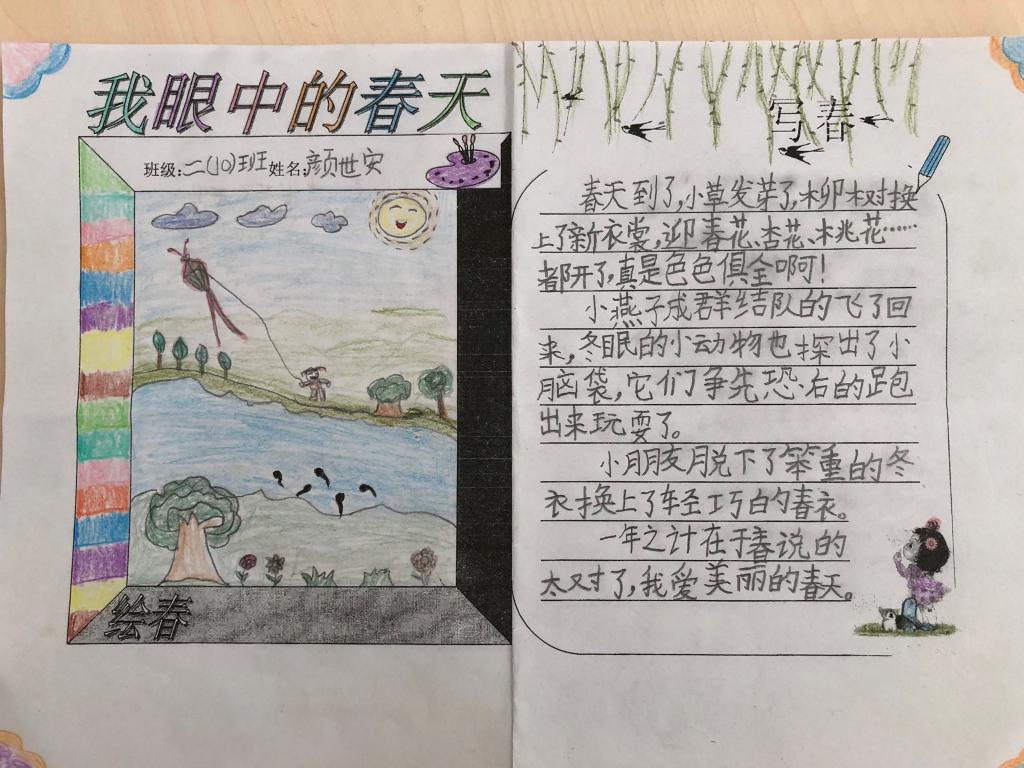 我眼中的春天
班级:二(10)班姓名:颜世安
绘春
写春
春天到了,小草发芽了,柳树换
上了新衣裳,迎春花、杏花、桃花……
都开了,真是色色俱全啊!
小燕子成群结队的飞了回
来,冬眠的小动物也探出了小
脑袋,它们争先恐右的跑
出来玩耍了。
小朋友脱下了笨重的冬
衣换上了轻巧的春衣。
一年之计在于春说的
太对了,我爱美丽的春天。